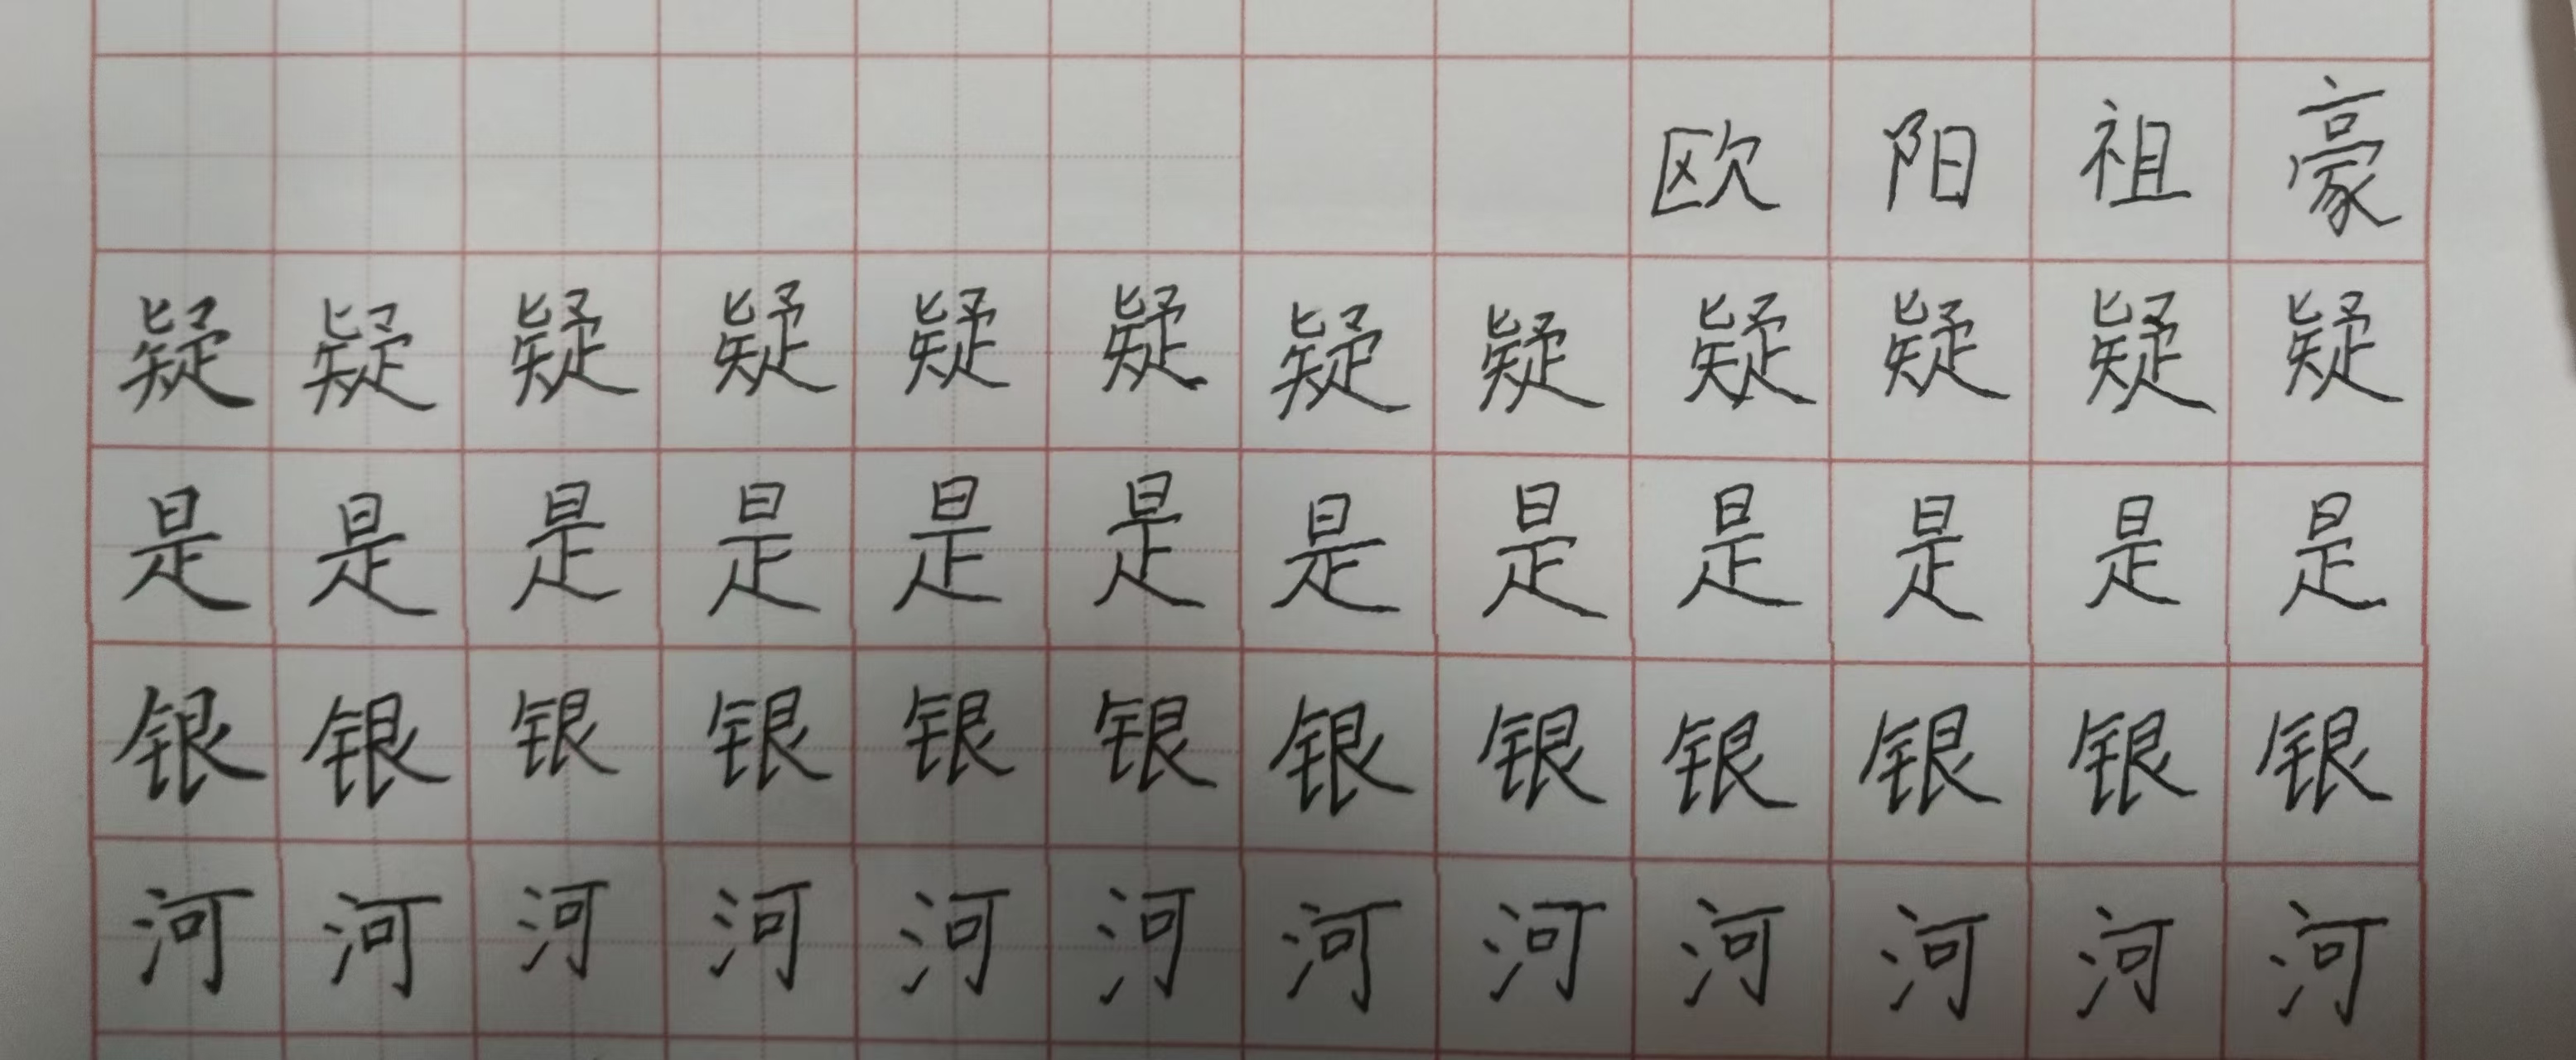 欧阳祖豪
疑疑疑疑疑疑疑疑疑疑疑疑
是是是是是是是是是是是是
银银银银银银银银银银银银
河河河河河河河河河河河河